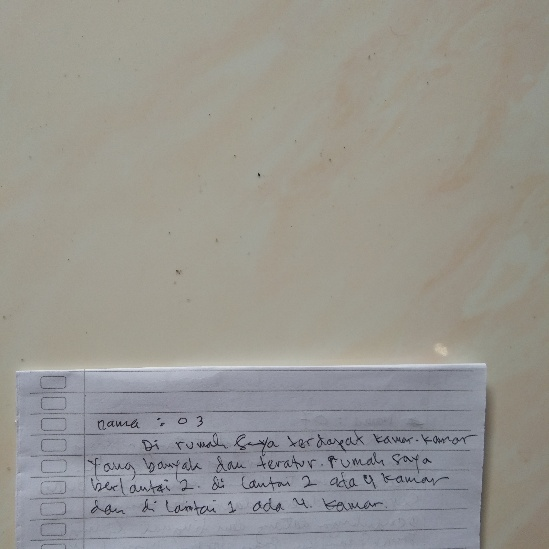 nama : 03
Di rumah saya terdapat kamar-kamar
yang banyak dan teratur. Rumah saya
berlantai 2. di lantai 2 ada 4 kamar
dan di lantai 1 ada 4 kamar.